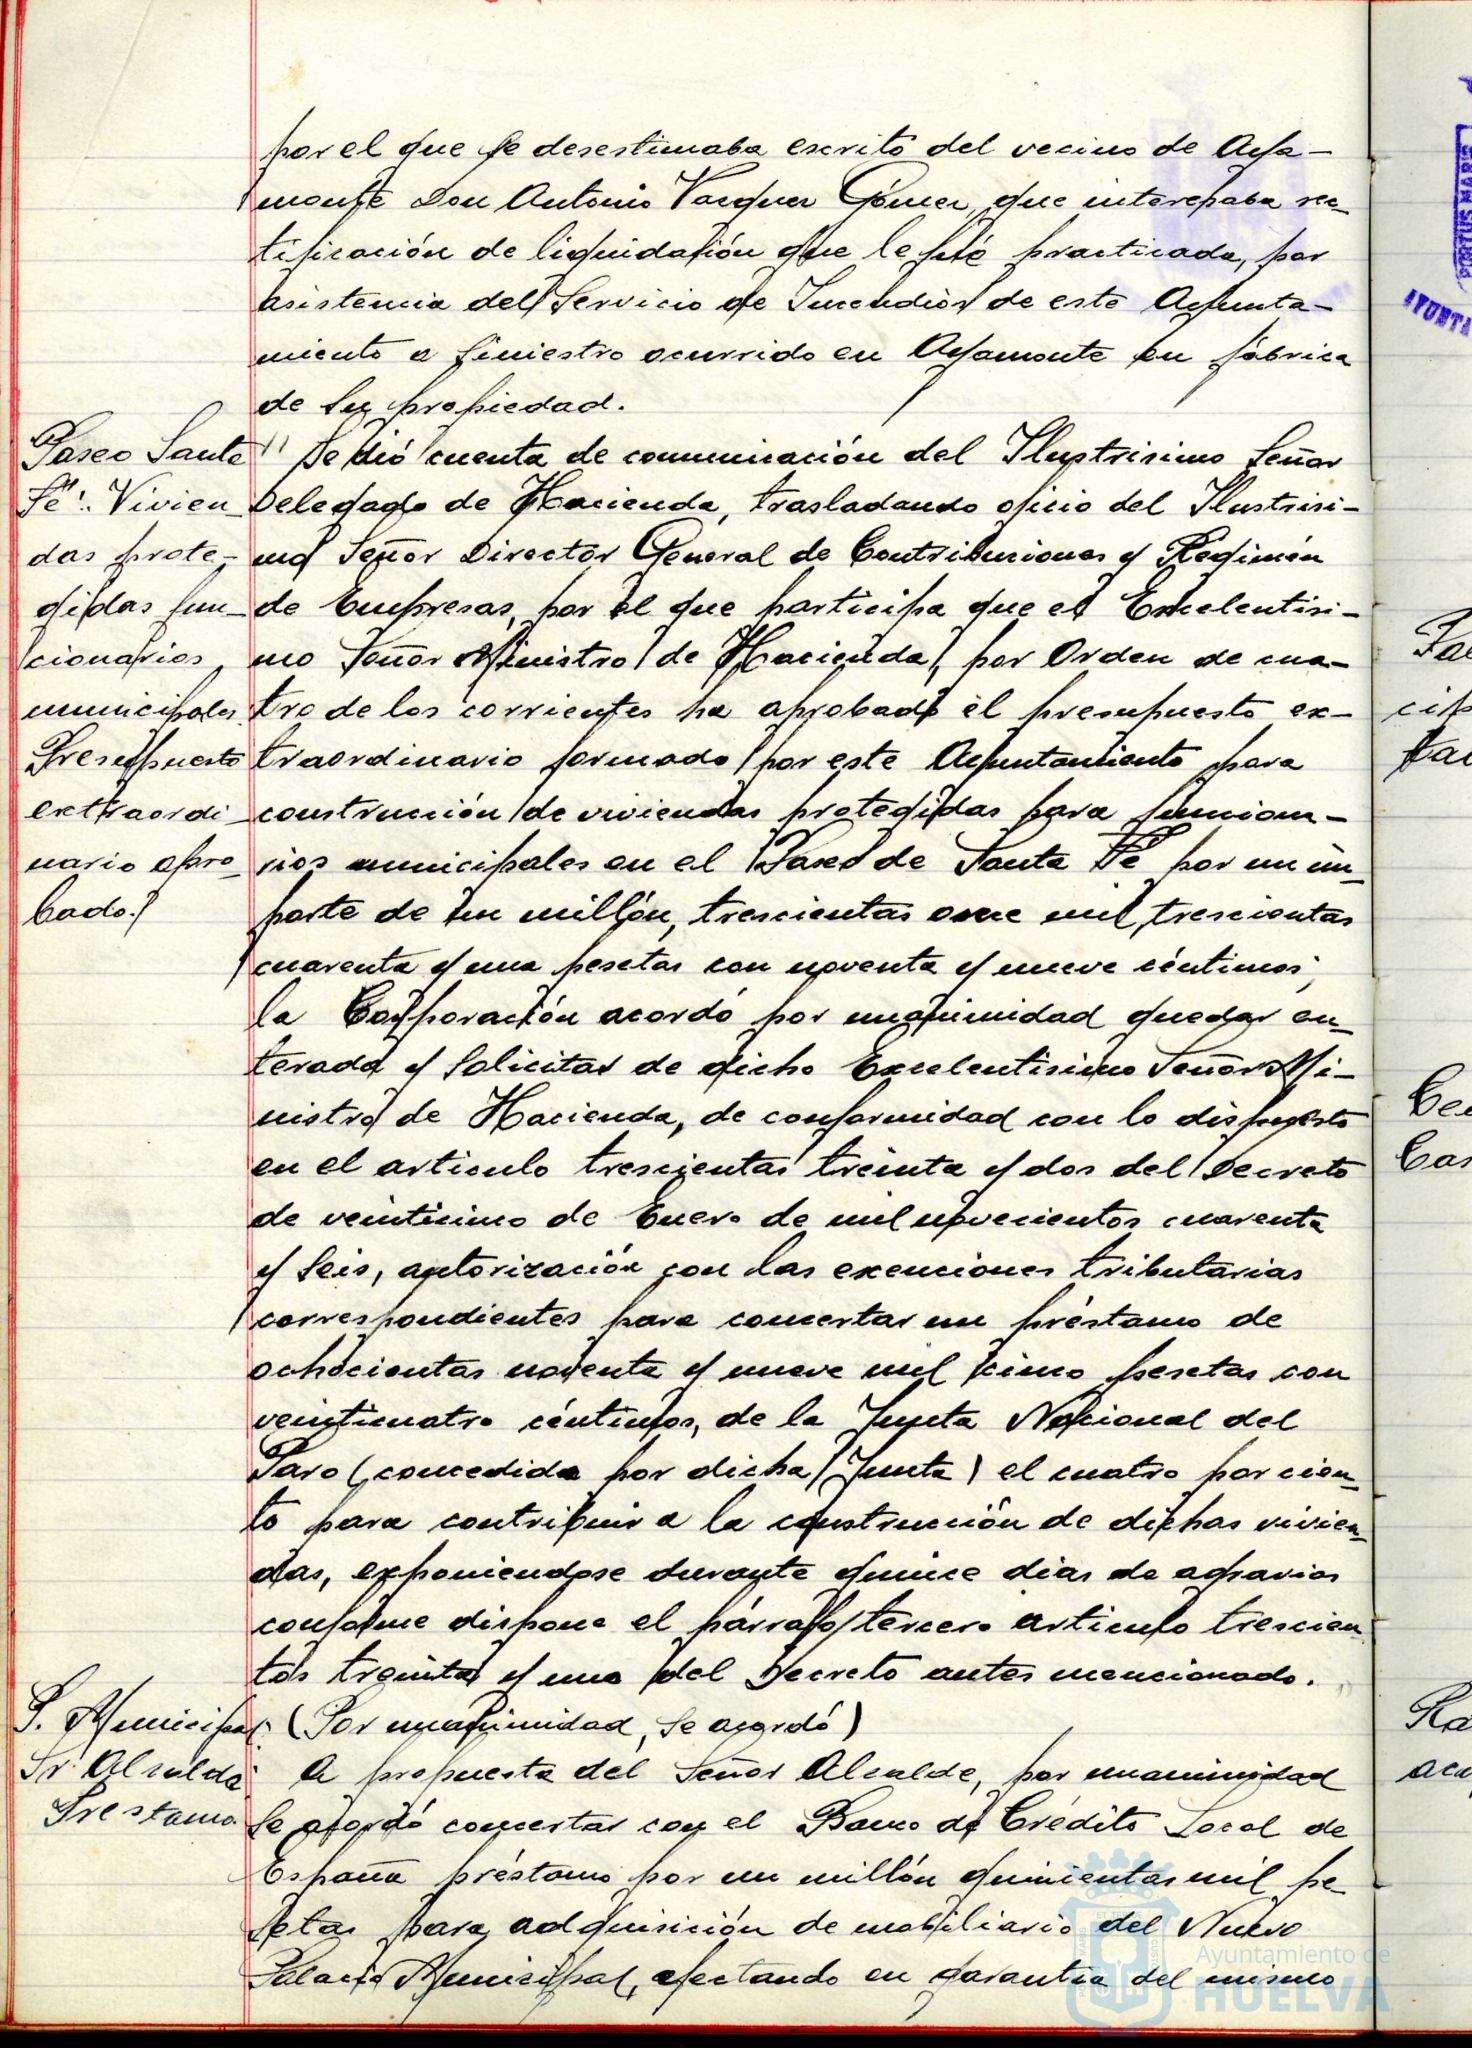 por el que se desestimaba escrito del vecino de Aya-
monte Don Antonio Vazquez Gómez, que interesaba rec-
tificación de liquidación que le fué practicada, por
asistencia del Servicio de Incendios de este Ayunta-
miento a siniestro ocurrido en Ayamonte en fábrica
de su propiedad.
Paseo Santa
Fé: Vivien
das prote-
gidas fun-
cionarios
municipales
Presupuesto
extraordi
nario apro
bado.
Se dió cuenta de comunicación del Ilustrisimo Señor
Delegado de Hacienda, trasladando oficio del Ilustrisi-
mo Señor Director General de Contribuciones y Regimén
de Empresas, por el que participa que el Excelentisi-
mo Señor Ministro de Hacienda, por Orden de cua-
tro de los corrientes ha aprobado el presupuesto ex-
traordinario formado por este Ayuntamiento para
construcción de viviendas protegidas para funciona-
rios municipales en el Paseo de Santa Fé por un im-
porte de un millón, trescientas once mil, trescientas
cuarenta y una pesetas con noventa y nueve céntimos;
la Corporación acordó por unanimidad quedar en-
terada y solicitar de dicho Excelentisimo Señor Mi-
nistro de Hacienda, de conformidad con lo dispuesto
en el articulo trescientas treinta y dos del Decreto
de veinticinco de Enero de mil novecientos cuarenta
y seis, autorización con las exenciones tributarias
correspondientes para concertar un préstamo de
ochocientas noventa y nueve mil cinco pesetas con
veinticuatro céntimos, de la Junta Nacional del
Paro (concedida por dicha Junta) el cuatro por cien-
to para contribuir a la construcción de dichas vivien-
das, exponiendose durante quince dias de agravios
conforme dispone el párrafo tercero articulo trescien
tos treinta y uno del Decreto antes mencionado.
(Por unanimidad, se acordó)
P. Municipal.
Sr Alcalde
Prestamo.
A propuesta del Señor Alcalde, por unanimidad
se acordó concertar con el Banco de Crédito Local de
España préstamo por un millón quinientas mil pe-
setas para adquisición de mobiliario del Nuevo
Palacio Municipal, afectando en garantia del mismo
Ayuntamiento de
HUELVA
PORTUS MARIS
AYUNTA